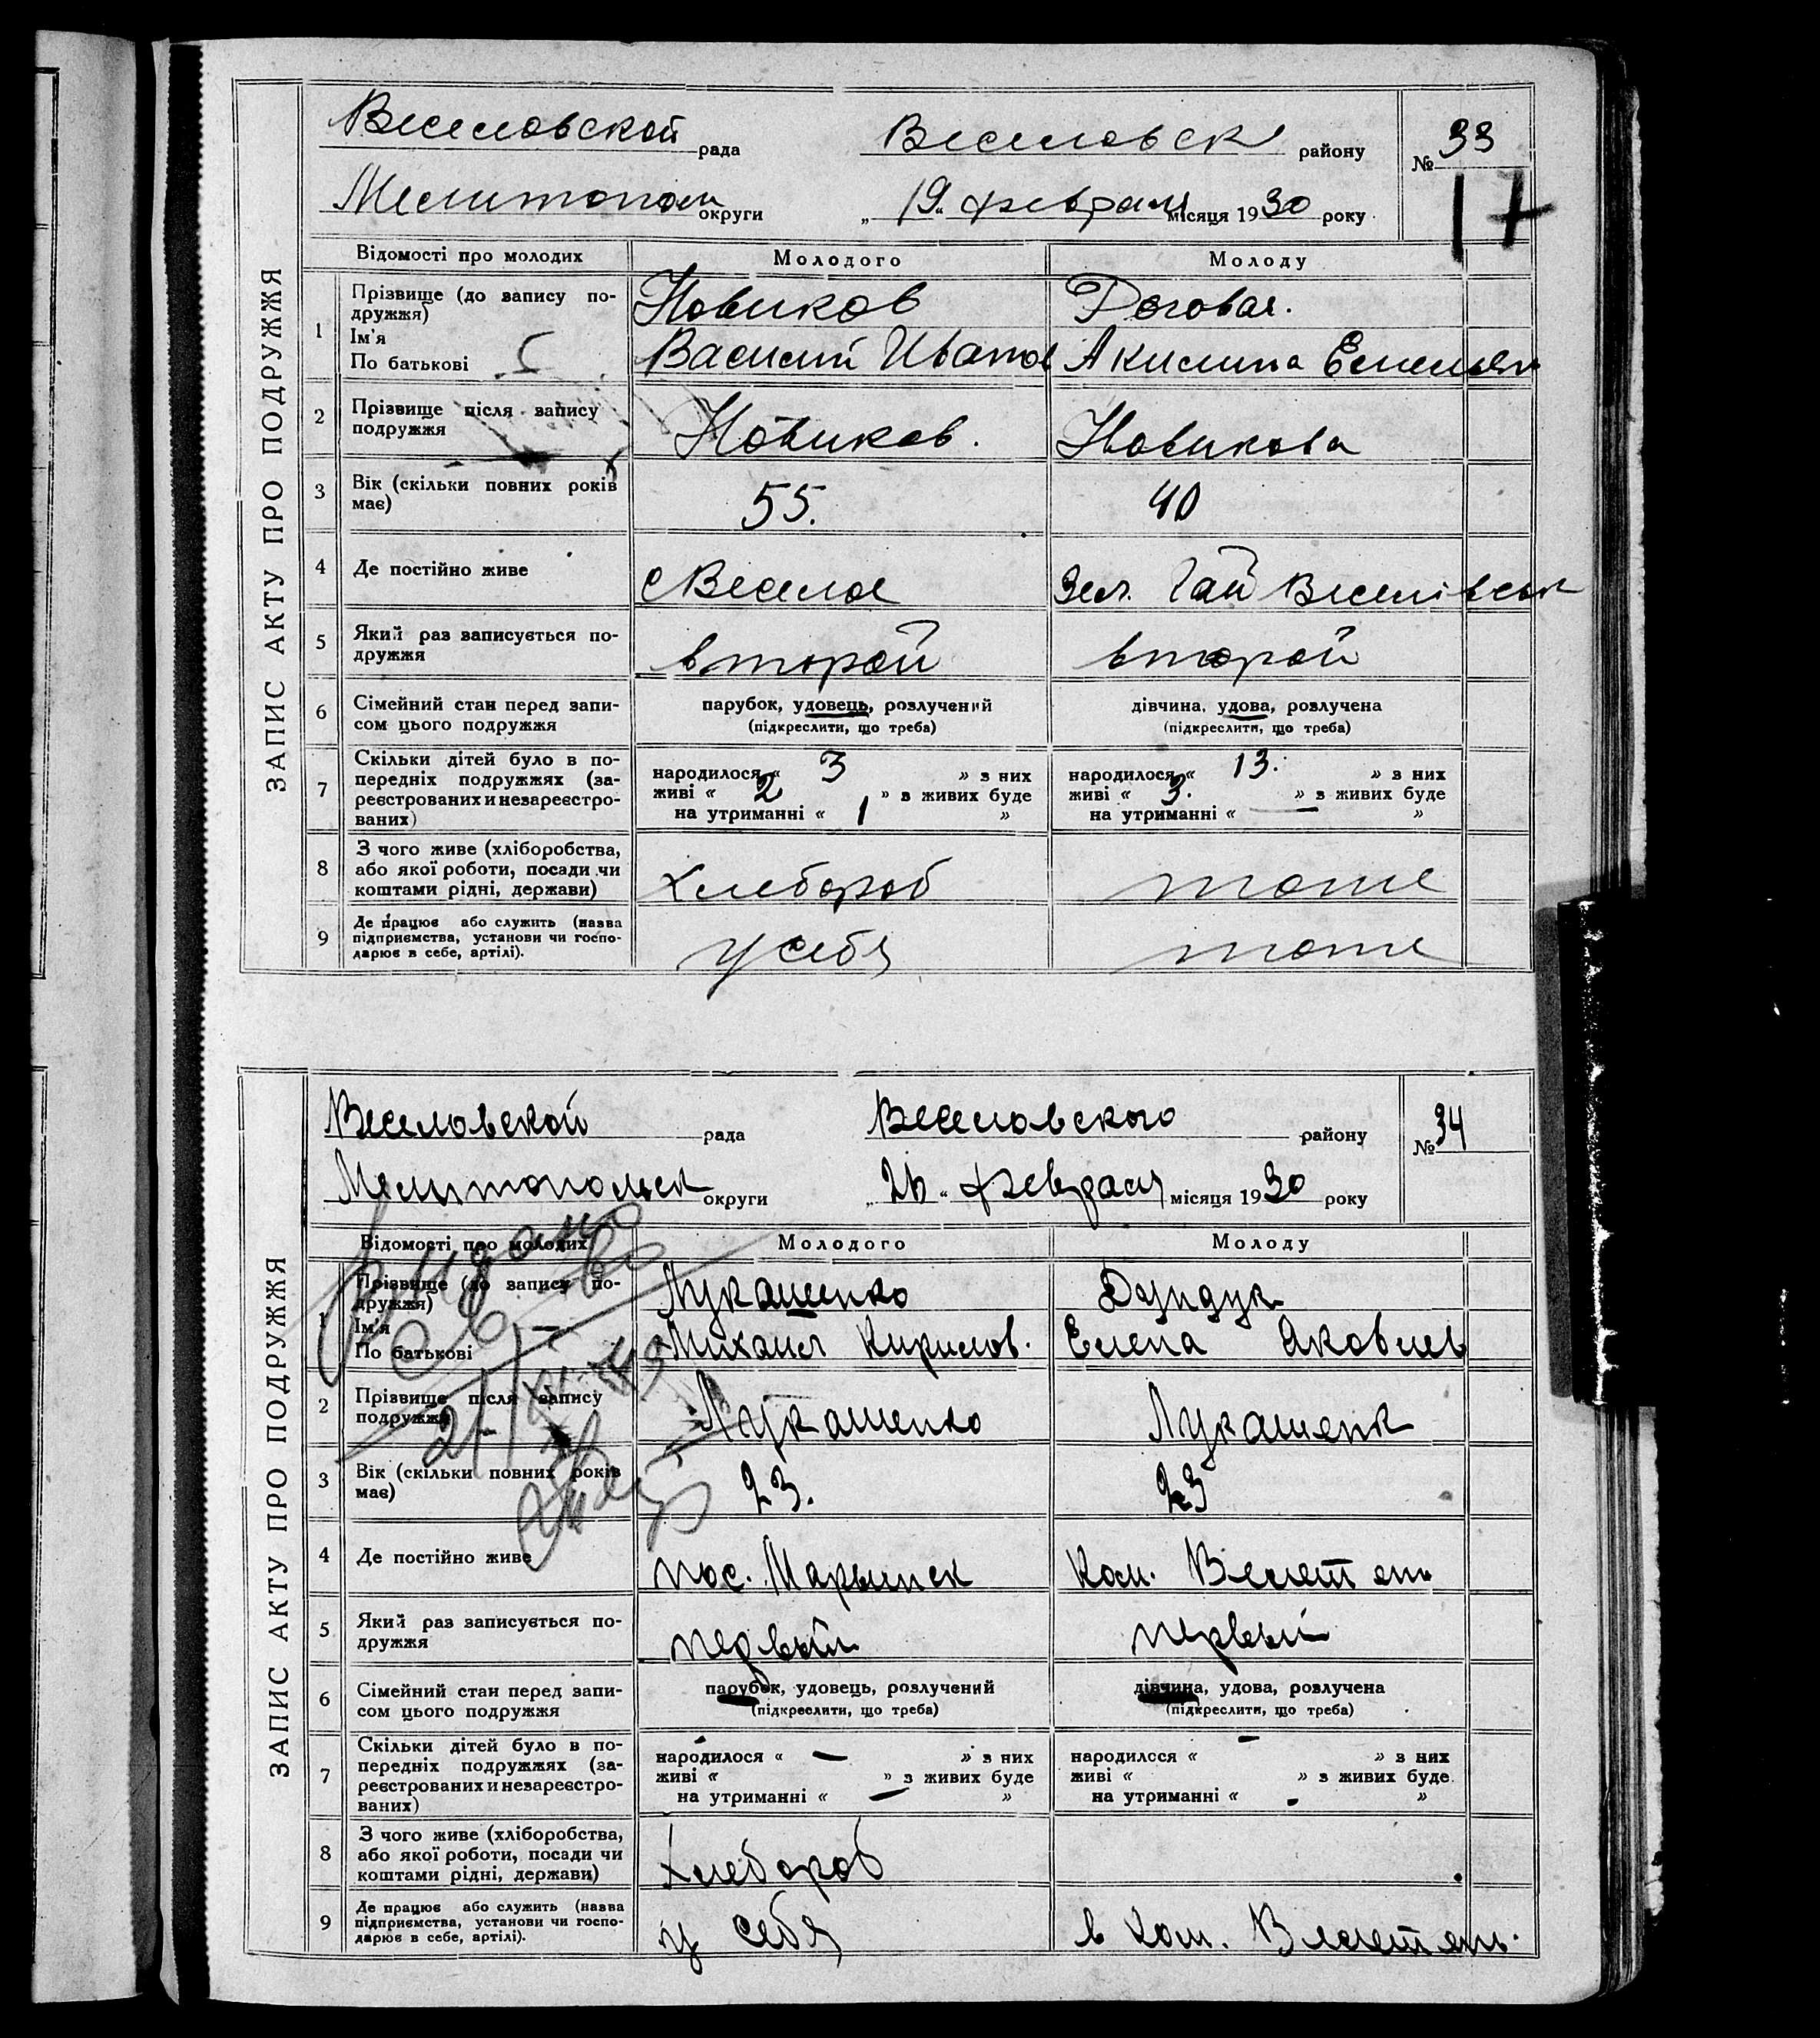 ЗАПИС АКТУ ПРО ПОДРУЖЖЯ
Веселовской рада Веселовск району № 33
17
Мелитопол округи „19„ февраля місяця 1930 року
Відомості про молодих Молодого Молоду
1 Прізвище (до запису подружжя) Новиков
Ім'я
По батькові Василий Иванов Акилина Емельян
2 Прізвище після запису подружжя Новиков. Новикова
3 Вік (скільки повних років має) 55. 40
4 Де постійно живе с Веселое Зел. Гай Веселівськ
5 Який раз записується подружжя второй второй
6 Сімейний стан перед записом цього подружжя парубок, удовець, розлучений дівчина, удова, розлучена
(підкреслити, що треба) (підкреслити, що треба)
7 Скільки дітей було в попередніх подружжях (зареєстрованих и незареєстрованих)
народилося « 3 » з них народилося « 13. » з них
живі « 2 » з живих буде живі « 3. » з живих буде
на утриманні « 1 » на утриманні « — »
8 З чого живе (хліборобства, або якої роботи, посади чи коштами рідні, держави) хлебороб тоже
9 Де працює або служить (назва підприємства, установи чи господарює в себе, артілі). у себя тоже
ЗАПИС АКТУ ПРО ПОДРУЖЖЯ
Веселовской рада Веселовского району № 34
Мелитопольск округи февраля місяця 1930 року
Відомості про молодих Молодого Молоду
1 Прізвище (до запису подружжя) Лукашенко Дундук
Ім'я
По батькові Михаил Кирилов. Елена Яковлев
2 Прізвище після запису подружжя Лукашенко Лукашенк
3 Вік (скільки повних років має) 23. 23
4 Де постійно живе пос. Марьинск Ком.
5 Який раз записується подружжя первый первый
6 Сімейний стан перед записом цього подружжя парубок, удовець, розлучений дівчина, удова, розлучена
(підкреслити, що треба) (підкреслити, що треба)
7 Скільки дітей було в попередніх подружжях (зареєстрованих и незареєстрованих)
народилося « — » з них народилося « — » з них
живі « » з живих буде живі « » з живих буде
на утриманні « — » на утриманні « - »
8 З чого живе (хліборобства, або якої роботи, посади чи коштами рідні, держави) Хлебороб
9 Де працює або служить (назва підприємства, установи чи господарює в себе, артілі). у себя в Ком.